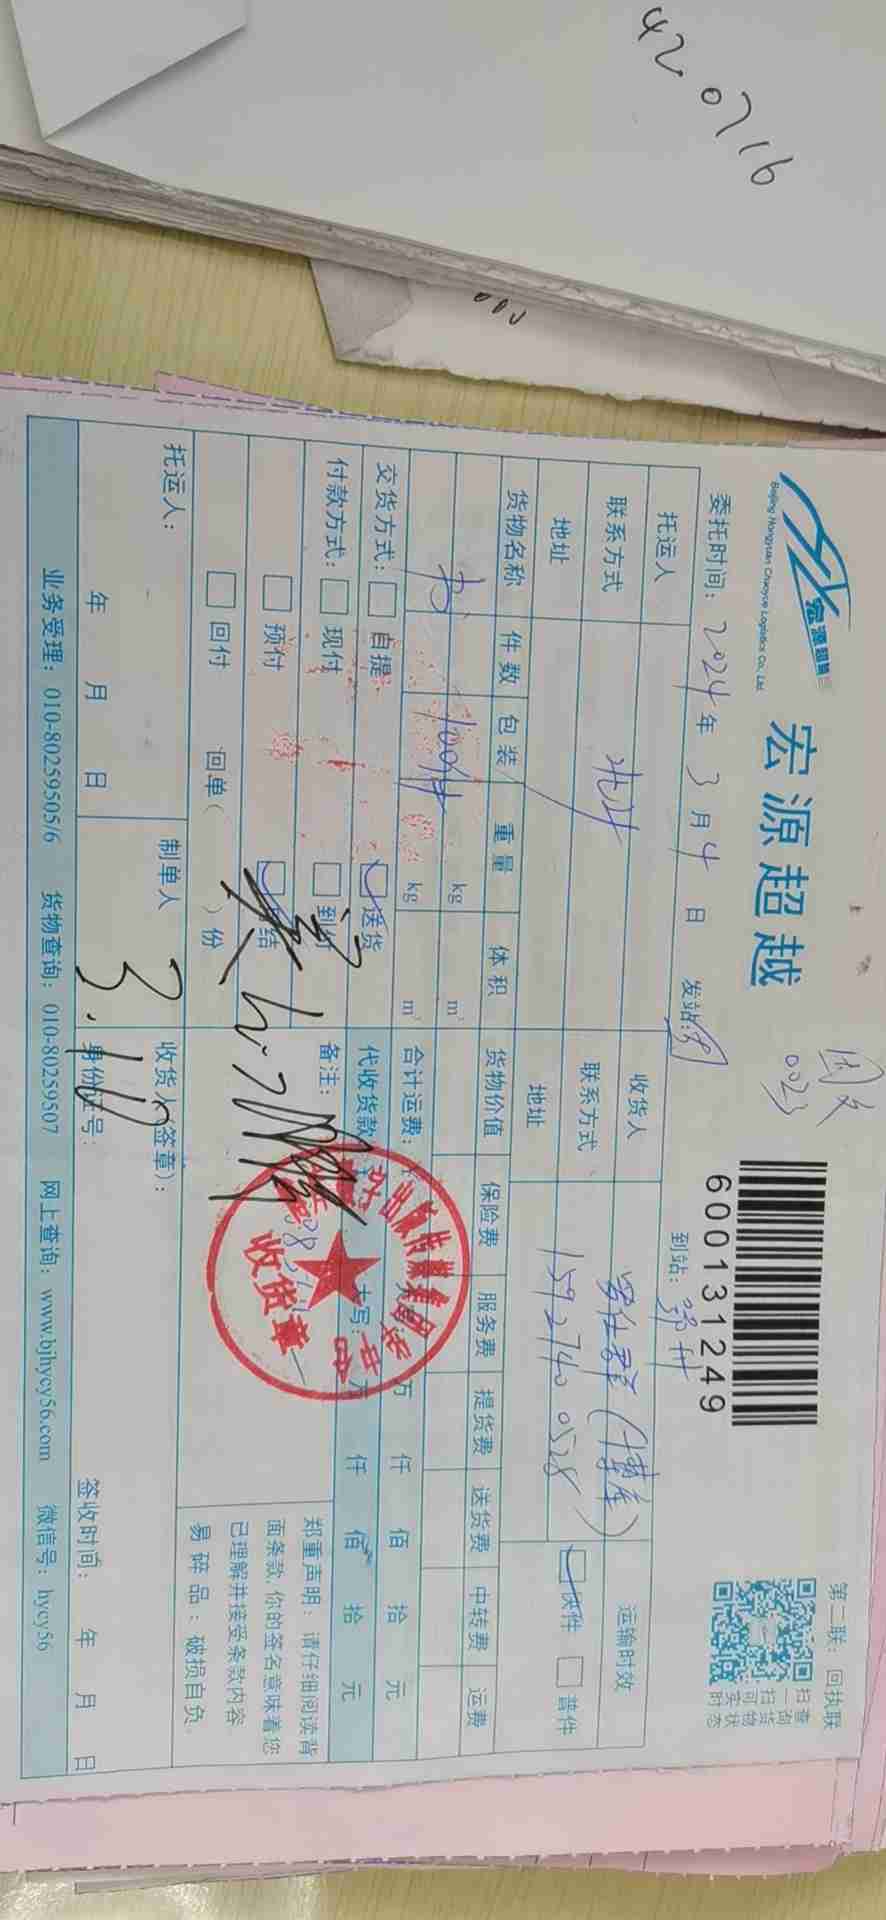 420716
宏源超越
Beijing Hongyuan Chaoyue Logistics Co., Ltd.
宏源超越
0023
第二联：回执联
600131249
扫一扫可
查询货物实时状态
委托时间：2024年3月4日 发站：
到站：鄂州
托运人
收货人
运输时效
联系方式
北京
联系方式
15927400528
快件 普件
地址
地址
货物名称 件数 包装 重量 体积 货物价值 保险费 服务费 提货费 送货费 中转费 运费
书 100件 kg m³
kg m³
合计运费： 万 仟 佰 拾 元
交货方式： 自提 送货
代收货款 大写： 万 仟 佰 拾 元
付款方式： 现付 到付
备注：
预付 结
回付 回单（ ）份
收货章
郑重声明：请仔细阅读背
面条款，你的签名意味着您
已理解并接受条款内容
易碎品：破损自负
托运人：
年 月 日
制单人
收货人（签章）：
3.10
身份证号：
签收时间： 年 月 日
业务受理：010-80259505/6 货物查询：010-80259507 网上查询：www.bjhycy56.com 微信号：hycy56